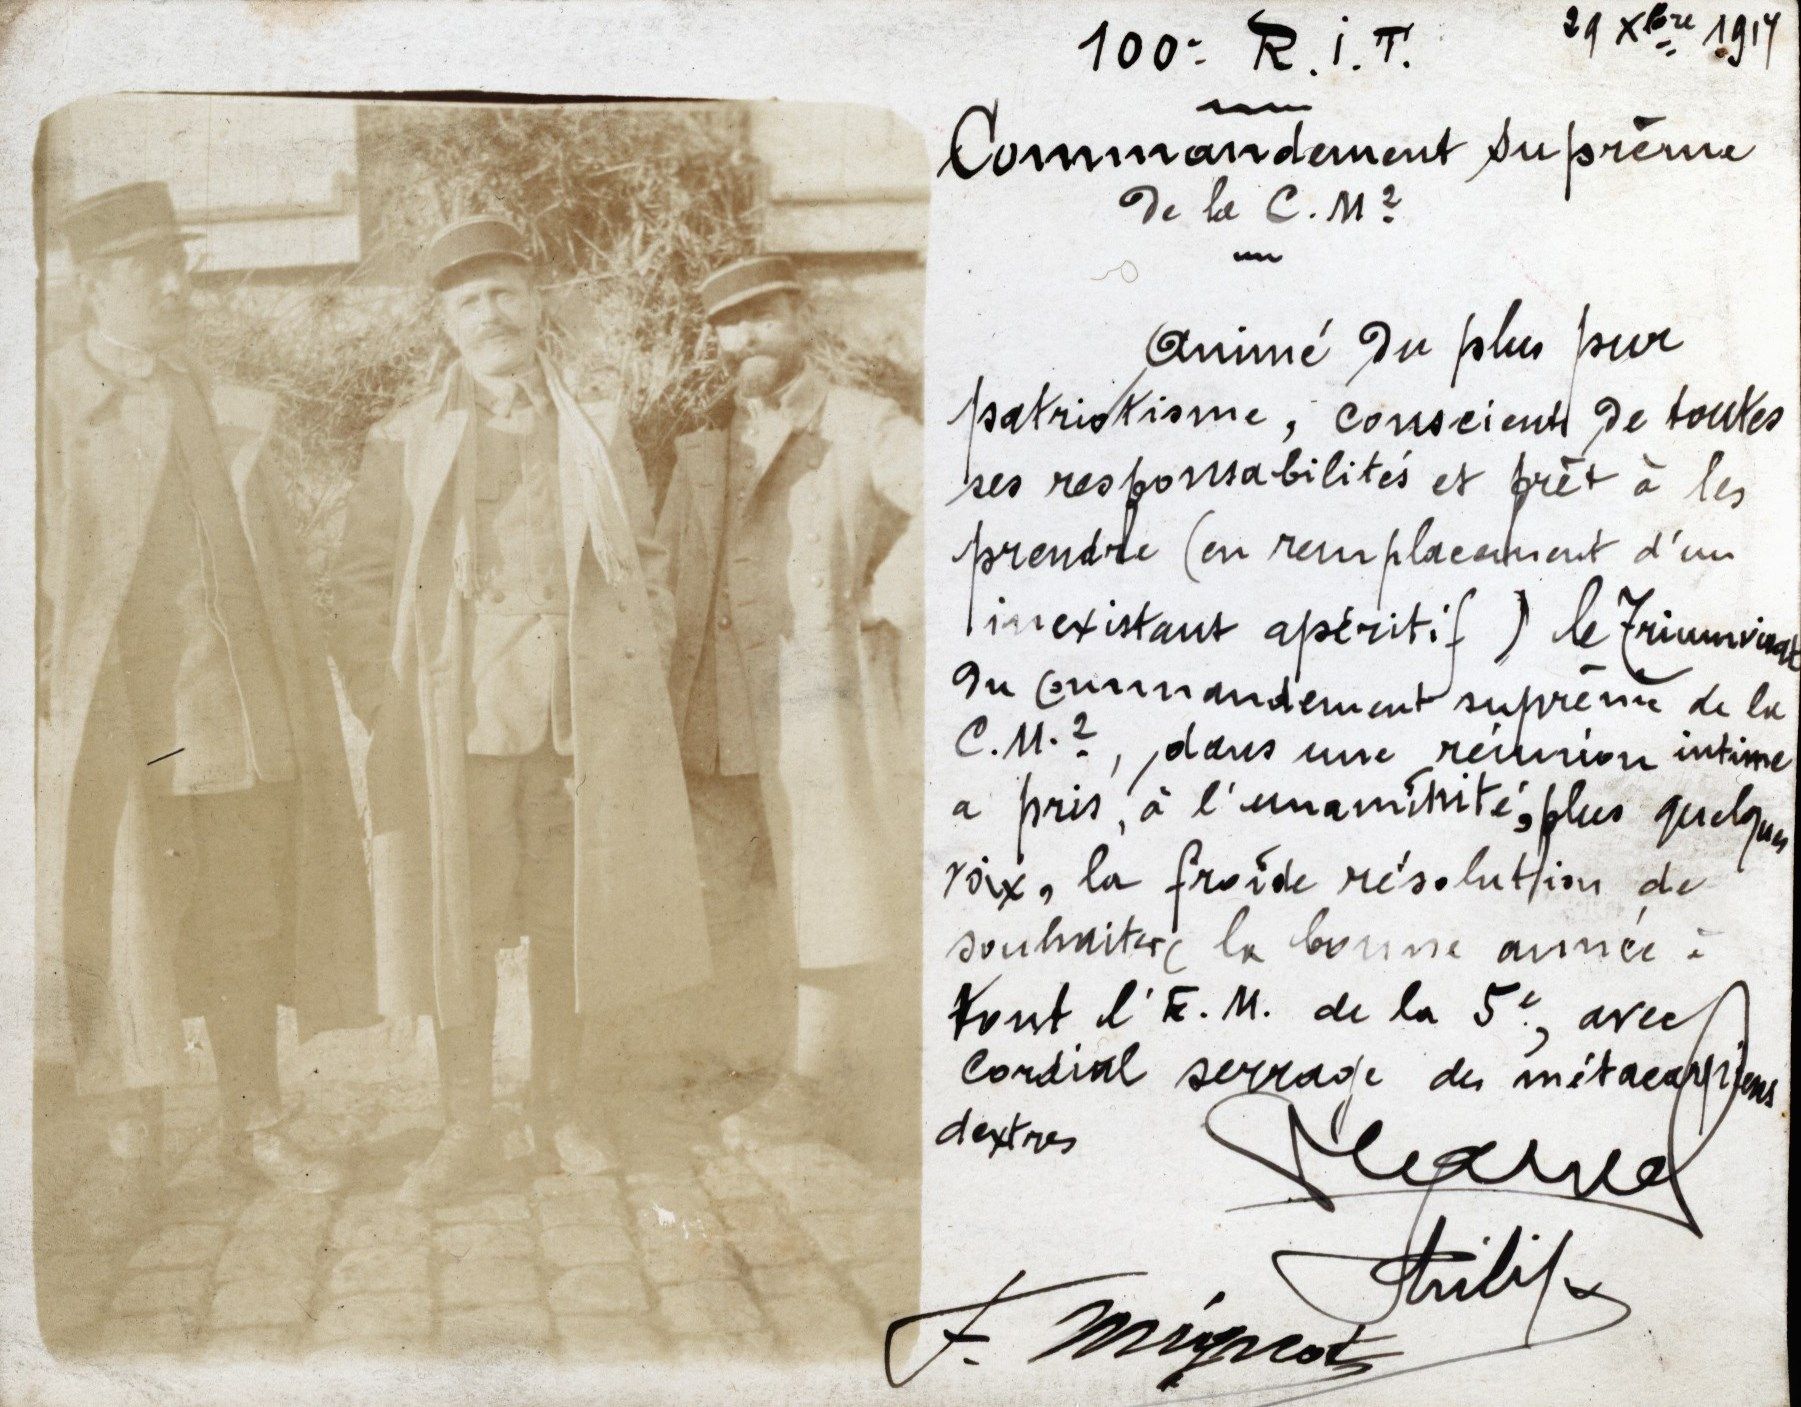 100e R.I.T.
29 Xbre 1917
Commandement Suprême
De la C.M2
Animé du plus pur
patriotisme, conscient de toutes
ses responsabilités et prêt à les
prendre (en remplacement d'un
inexistant apéritif) le Triumvirat
du commandement suprême de la
C.M.2, dans une réunion intime
a pris, à l'unamihité, plus quelques
voix, la froide résolution de
souhaiter la bonne année à
tout l'E.M. de la 5e, avec
cordial serrage des métacarpiens
dextres
F. Mignot